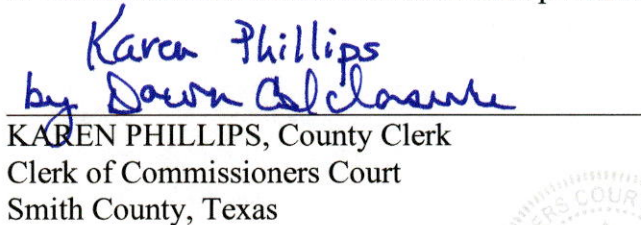 Karen Phillips
by Dawn Colclasure
KAREN PHILLIPS, County Clerk
Clerk of Commissioners Court
Smith County, Texas
ERS COUR